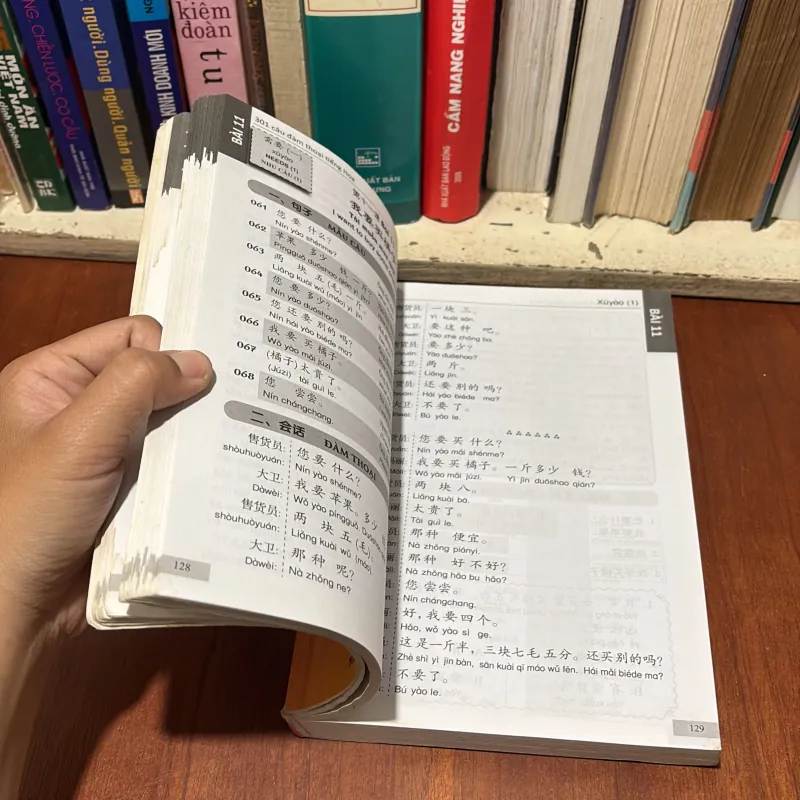 MÓN ĂN
VIỆT NAM
CHIẾN LƯỢC, CƠ CẤU
người. Dùng người. Quản người
KINH DOANH MỚI
kiếm
đoàn
tu
XUẤT BẢN
CẨM NANG NGHIỆP
NHÀ XUẤT BẢN LAO ĐỘNG
BÀI 11
301 câu đàm thoại tiếng Hoa
需要 (一)
xūyào
NEEDS (1)
NHU CẦU (1)
我 要 买
I want to buy
一、句子 MẪU CÂU
061 您 要 什么?
Nín yào shénme?
062 苹果 多少 钱 一斤?
Píngguǒ duōshao qián yì jīn?
063 两 块 五 (毛) 一 斤
Liǎng kuài wǔ (máo) yì jīn
064 您 要 多少?
Nín yào duōshao?
065 您 还要 别的 吗?
Nín hái yào biéde ma?
066 我 要 买 橘子。
Wǒ yào mǎi júzi.
067 (橘子) 太贵了。
(Júzi) tài guì le.
068 您 尝尝。
Nín chángchang.
二、会话 ĐÀM THOẠI
售货员: 您 要 什么?
shòuhuòyuán: Nín yào shénme?
大卫: 我 要 苹果。多少
Dàwèi: Wǒ yào píngguǒ. Duōshao
售货员: 两 块 五 (毛)
shòuhuòyuán: Liǎng kuài wǔ (máo)
大卫: 那 种 呢?
Dàwèi: Nà zhǒng ne?
128
Xūyào (1)
BÀI 11
售货员: 一块 三。
Yí kuài sān.
大卫: 要 这种 吧。
Dàwèi: Yào zhè zhǒng ba.
要 多少?
Yào duōshao?
大卫: 两 斤。
Dàwèi: Liǎng jīn.
还要 别的 吗?
Hái yào biéde ma?
大卫: 不要 了。
Dàwèi: Bú yào le.
您 要 买 什么?
Nín yào mǎi shénme?
我 要 买 橘子。一斤 多少 钱?
Wǒ yào mǎi júzi. Yì jīn duōshao qián?
两 块 八。
Liǎng kuài bā.
太 贵了。
Tài guì le.
那种 便宜。
Nà zhǒng piányi.
那种 好 不好?
Nà zhǒng hǎo bu hǎo?
您 尝尝。
Nín chángchang.
好, 我 要 四个。
Hǎo, wǒ yào sì ge.
这是 一斤 半, 三块 七毛 五分。还买 别的 吗?
Zhè shì yì jīn bàn, sān kuài qī máo wǔ fēn. Hái mǎi biéde ma?
不要 了。
Bú yào le.
129